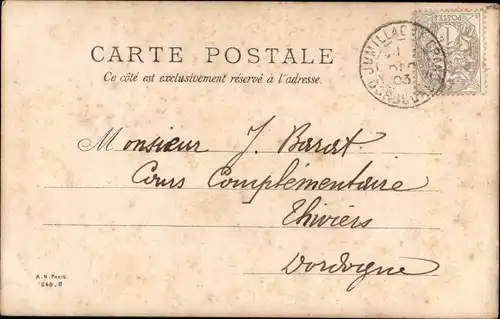 CARTE POSTALE
Ce côté est exclusivement réservé à l'adresse.
JUMILLAC-LE-GRAND
DORDOGNE
03
POSTES
1
Monsieur J. Barat
Cours Complémentaire
Thiviers
Dordogne
A.N. PARIS